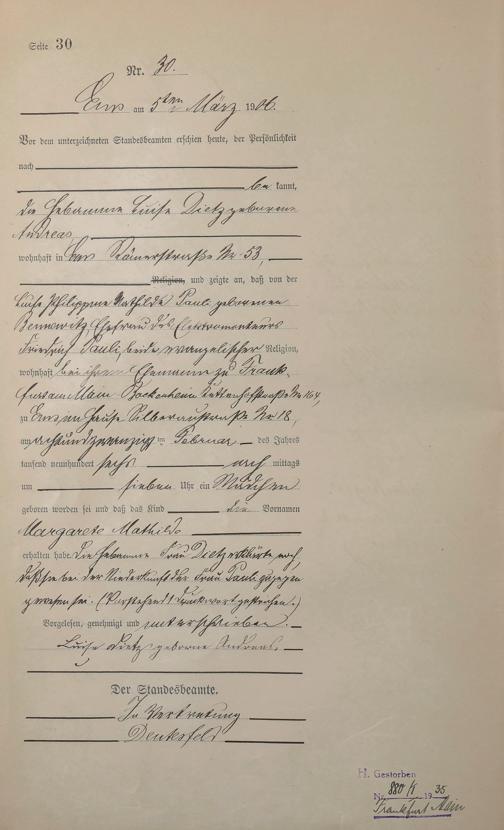 Seite 30
Nr. 30.
Ems am 5ten März 1906.
Vor dem unterzeichneten Standesbeamten erschien heute, der Persönlichkeit
nach
be kannt,
die Hebamme Luise Dietz geborene
Andreas,
wohnhaft in Ems Römerstraße Nr. 53,
Religion, und zeigte an, daß von der
Luise Philippine Mathilde Pauli geborenen
Ehefrau des Elektromonteurs
Friedrich Pauli, beide evangelischer Religion,
wohnhaft bei ihrem Ehemanne zu Frank-
furt am Main Bockenheim Nr. 164,
zu Ems, im Hause Silberaustraße Nr. 18,
am achtundzwanzigsten Februar des Jahres
tausend neunhundert sechs nach mittags
um sieben Uhr ein Mädchen
geboren worden sei und daß das Kind die Vornamen
Margarete Mathilde
erhalten habe. Die Hebamme Frau Dietz erklärte noch,
daß sie bei der Niederkunft der Frau Pauli zugegen
gewesen sei. (Vorstehend 1 Druckwort gestrichen.)
Vorgelesen, genehmigt und unterschrieben.
Luise Dietz geborne Andreas.
Der Standesbeamte.
In Vertretung
H. Gestorben
Nr. 880/I 1935
Frankfurt Main